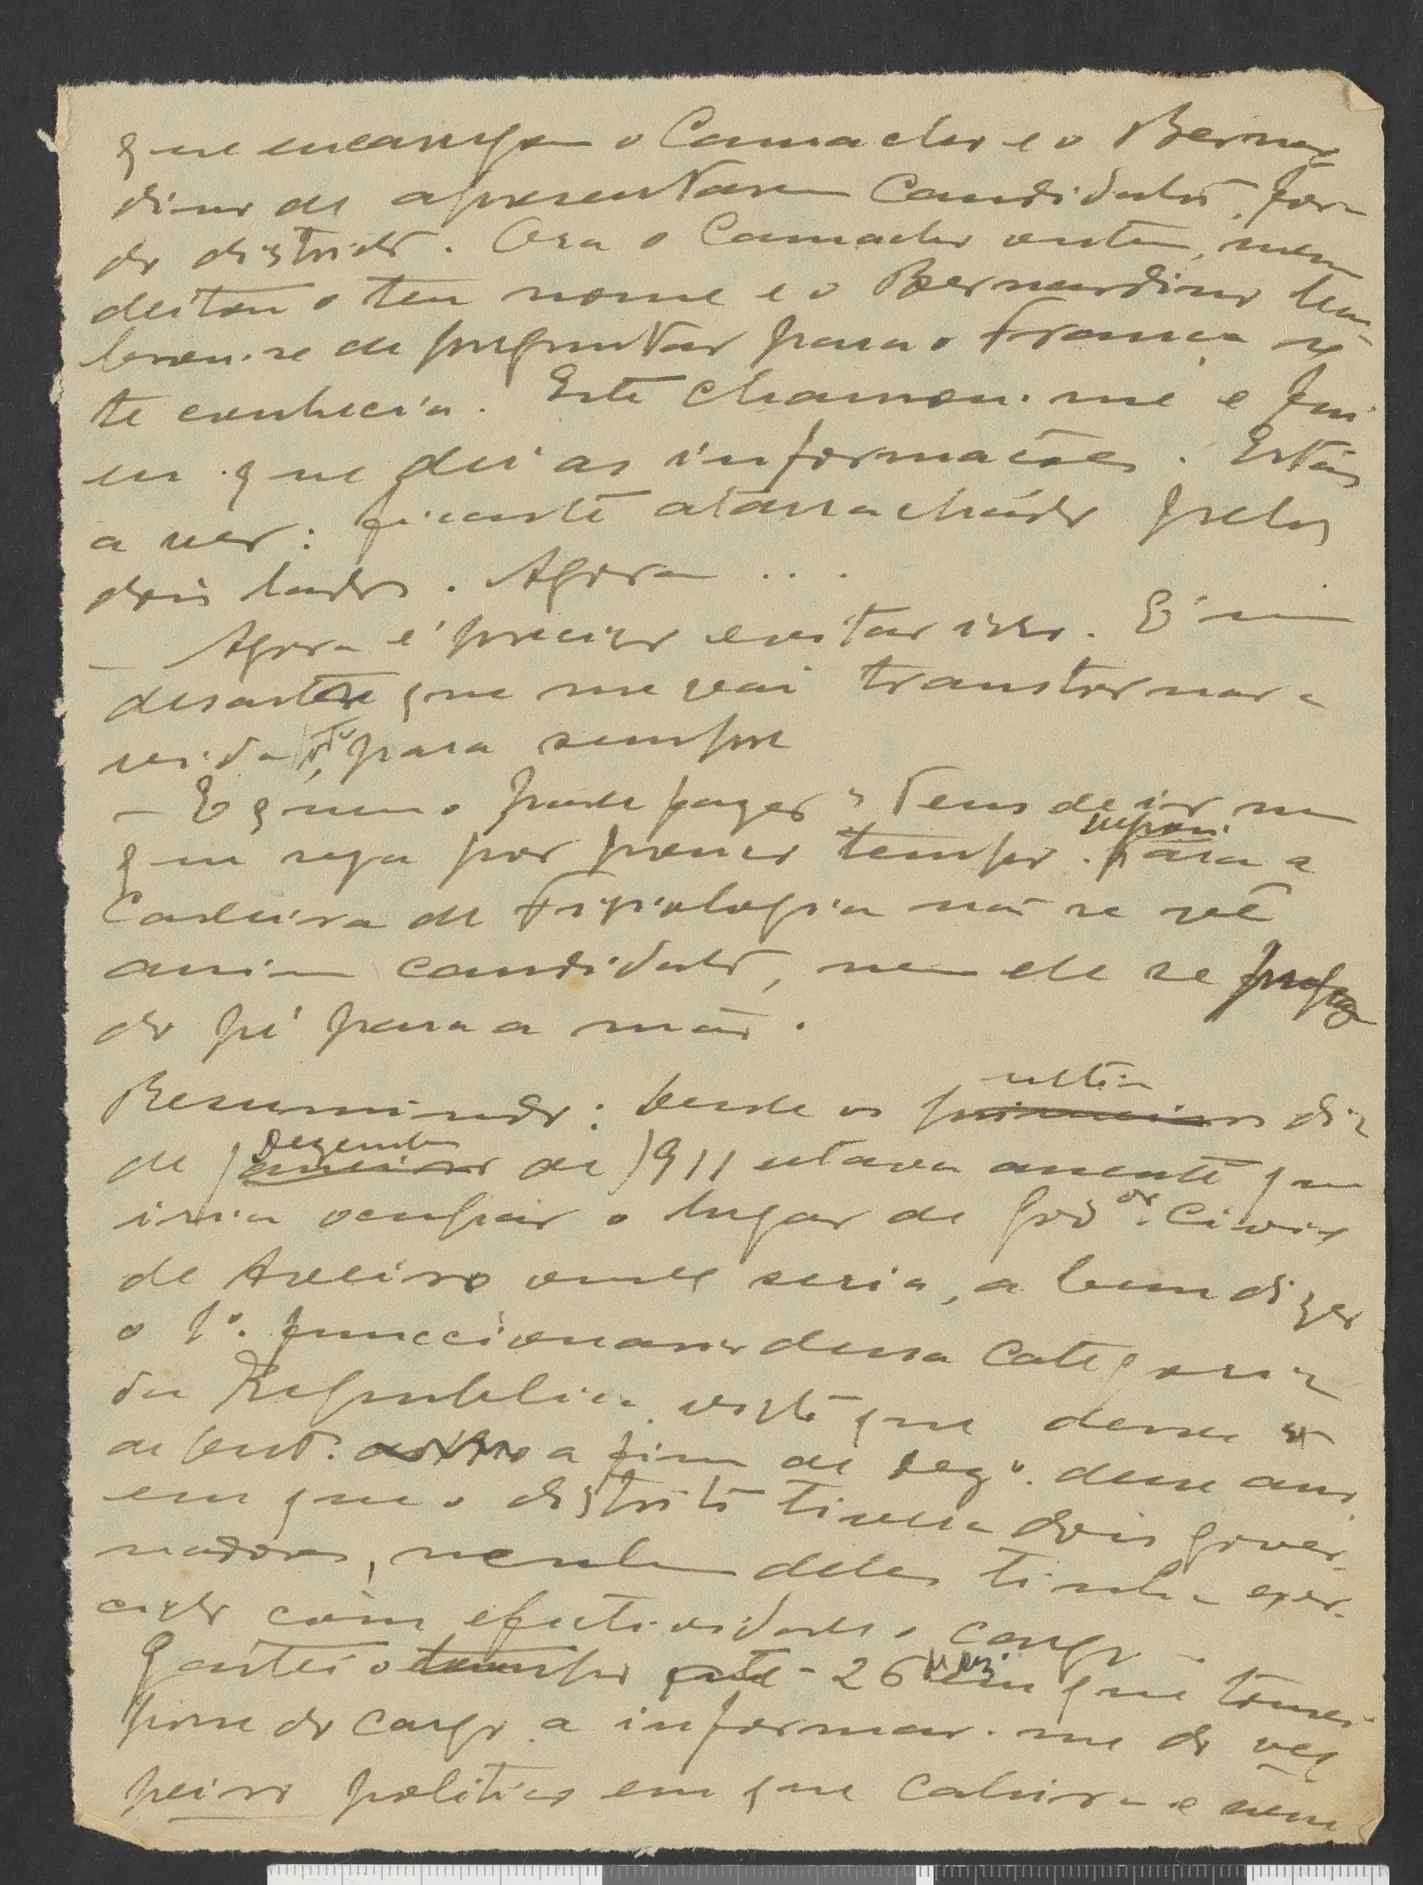 que encarrega o Camacho e o Bernar-
dino de apresentarem candidato, fora
do distrito. Ora o Camacho ontem,
deitou o teu nome e o Bernardino lem-
brou-se de preguntar para o França se
te conhecia. Este chamou-me e fui
eu que dei as informações. Estás
a ver: ficaste atarrachado pelos
dois lados. Agora ...
— Agora é preciso evitar isso. É um
desastre que me vai transtornar a
vida para sempre
— E que o pode fazer? Tens de ir
que seja por pouco tempo. para a
Cadeira de Fisiologia não se vê
assim candidato, nem ele se
do pé para a mão.
Resumindo: desde os ultim dia
de Dezembro de 1911 estava assente que
iria ocupar o lugar de Gov.or Civil
de Aveiro onde seria, a bem dizer
o 1º. funccionario dessa categoria
da Republica visto que desde
de Out. a fim de Dez.º desse ano
em que o distrito tivera dois gover-
nadores, nenhum deles tinha exer-
cido com efectividade o cargo.
Gastei o tempo até 26 em que tomei
posse do cargo a informar-me do ves-
peiro politico em que cahira e nem